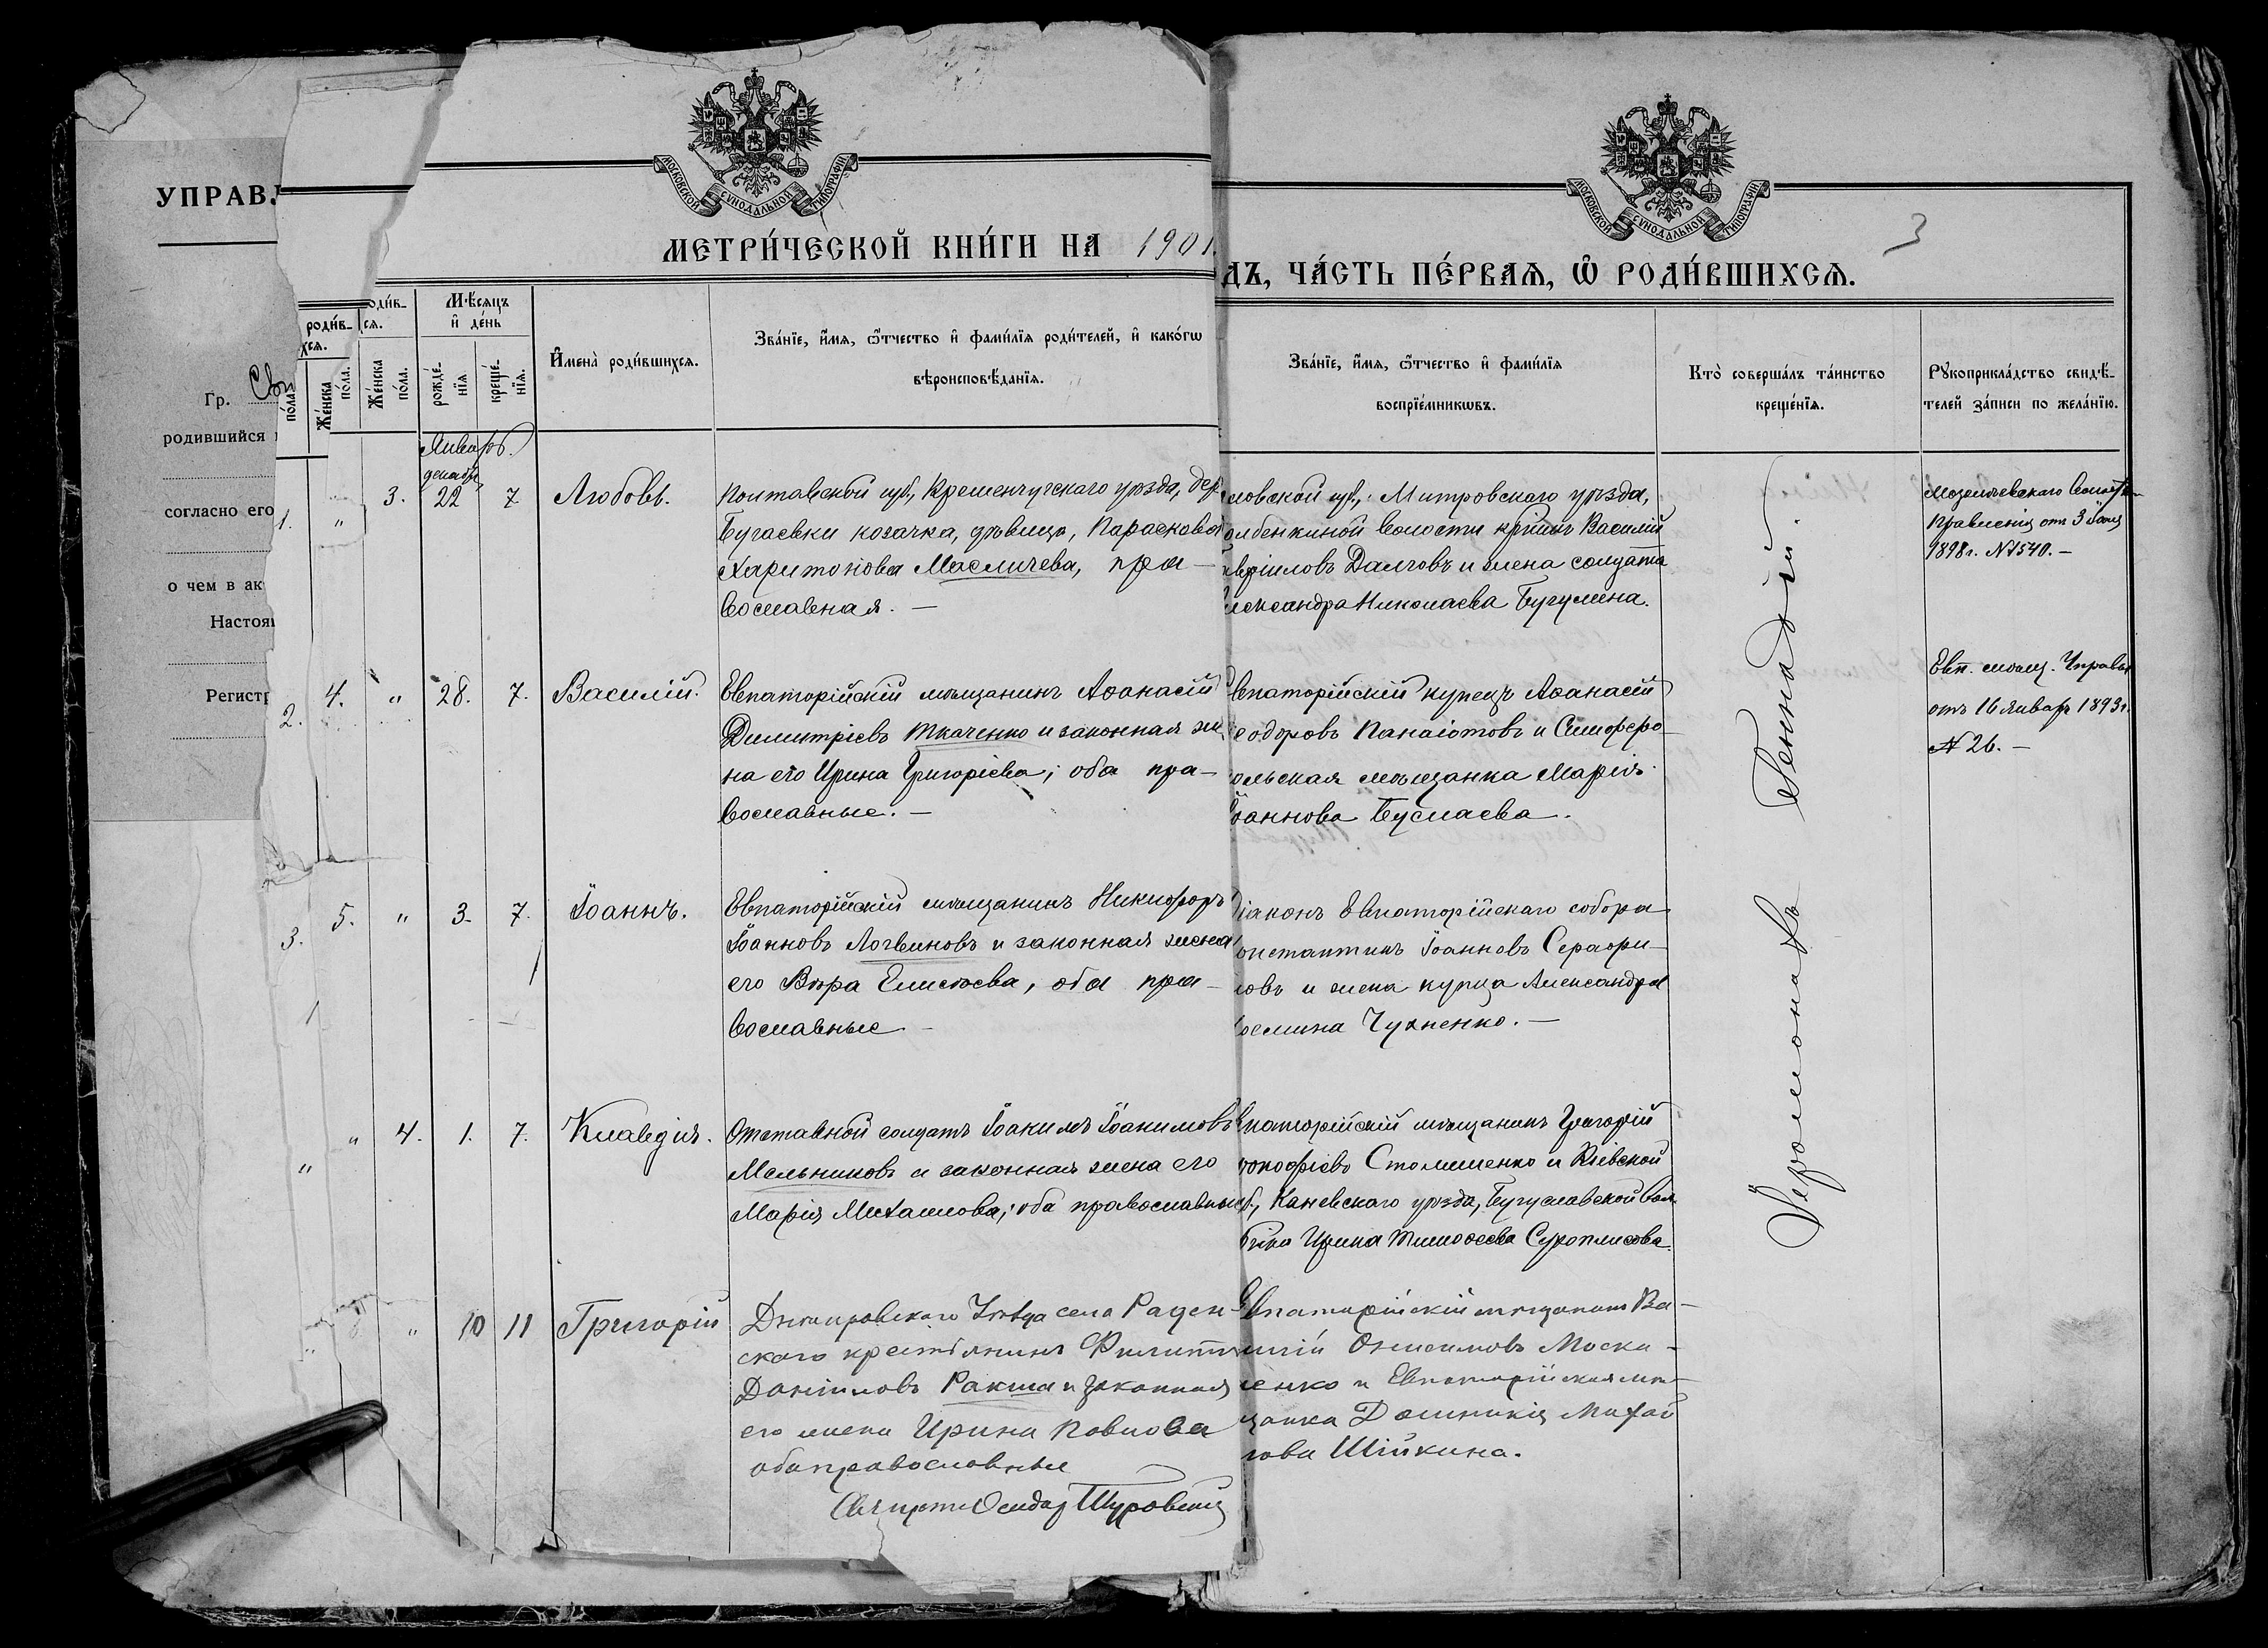 МОСКОВСКОЙ СѴНОДАЛЬНОЙ ТИПОГРАФІИ
МОСКОВСКОЙ СѴНОДАЛЬНОЙ ТИПОГРАФІИ
3
УПРАВ
МЕТРИ́ЧЕСКОЙ КНИ́ГИ НА 1901
ДЪ, ЧА́СТЬ ПЕ́РВАЯ, Ѿ РОДИ́ВШИХСЯ.
Гр.
родившийся
согласно его
о чем в ак
Настоя
Регистр
роди́в-
хся.
оди́в-
ся.
пола
Же́нска
по́ла.
Же́нска
по́ла.
Мѣ́сяцъ
и҆ де́нь
рожде́-
нїя
креще́-
нїя.
И҆мена̀ роди́вшихся.
Зва́нїе, и҆́мя, ѻ҆́тчество и҆ фами́лїя роди́телей, и҆ како́гѡ
вѣроисповѣ́данїя.
Зва́нїе, и҆́мя, ѻ҆́тчество и҆ фами́лїя
воспрїе́мникѡвъ.
Кто̀ соверша́лъ та́инство
креще́нїя.
Рꙋкоприкла́дство свидѣ́-
телей за́писи по жела́нїю.
Январь.
декабр.
1. " 3. 22 7 Любовь.
Полтавской губ., Кременчугскаго уѣзда, дер.
Бугаевки козачка, дѣвица, Параскова
Харитонова Масличева, пра-
вославная. —
ловской губ., Митровскаго уѣзда,
олбенкиной волости кр̃нинъ Василій
авріиловъ Далговъ и жена солдата
лександра Николаева Бугулина.
Правленія отъ 3
1898 г. №1540. —
2. 4. " 28. 7. Василій.
Евпаторійскій мѣщанинъ Аѳанасій
Димитріевъ Ткаченко и законная же-
на его Ирина Григоріева; оба пра-
вославные. —
впаторійскій купецъ Аѳанасій
еодоровъ Панаіотовъ и Симферо-
ольская мѣщанка Марія
оаннова Буслаева.
Евп. мѣщ. Управы
отъ 16 Январ 1893 г.
№ 26. —
3. 5. " 3. 7. Іоаннъ.
Евпаторійскій мѣщанинъ Никифоръ
Іоанновъ Логвиновъ и законная жена
его Вѣра Елисѣева, оба пра-
вославные —
іаконъ Евпаторійскаго собора
онстантинъ Іоанновъ Серафи-
мовъ и жена купца Александра
Чухненко. —
" " 4. 1. 7. Клавдія.
Отставной солдатъ Іоакимъ Іоакимовъ
Мельниковъ и законная жена его
Марія Михаилова; оба православные
впаторійскій мѣщанинъ Григорій
рокофіевъ Столишенко и Кіевской
б., Каневскаго уѣзда, Бугуславской вол.
Ирина Тимоѳеева
" 10 11 Григорій
Днѣпровскаго Уѣзда села Раден-
скаго крестьянинъ Филиппъ
Даніиловъ Ракша и законная
его жена Ирина Павлова
оба православные
Евпаторійскій мѣщанинъ Ва-
илій Онисимовъ Моска-
ленко и Евпаторійская мѣ-
щанка Домникія Михай
лова Шійкина.
Іеромонахъ Геннадій.